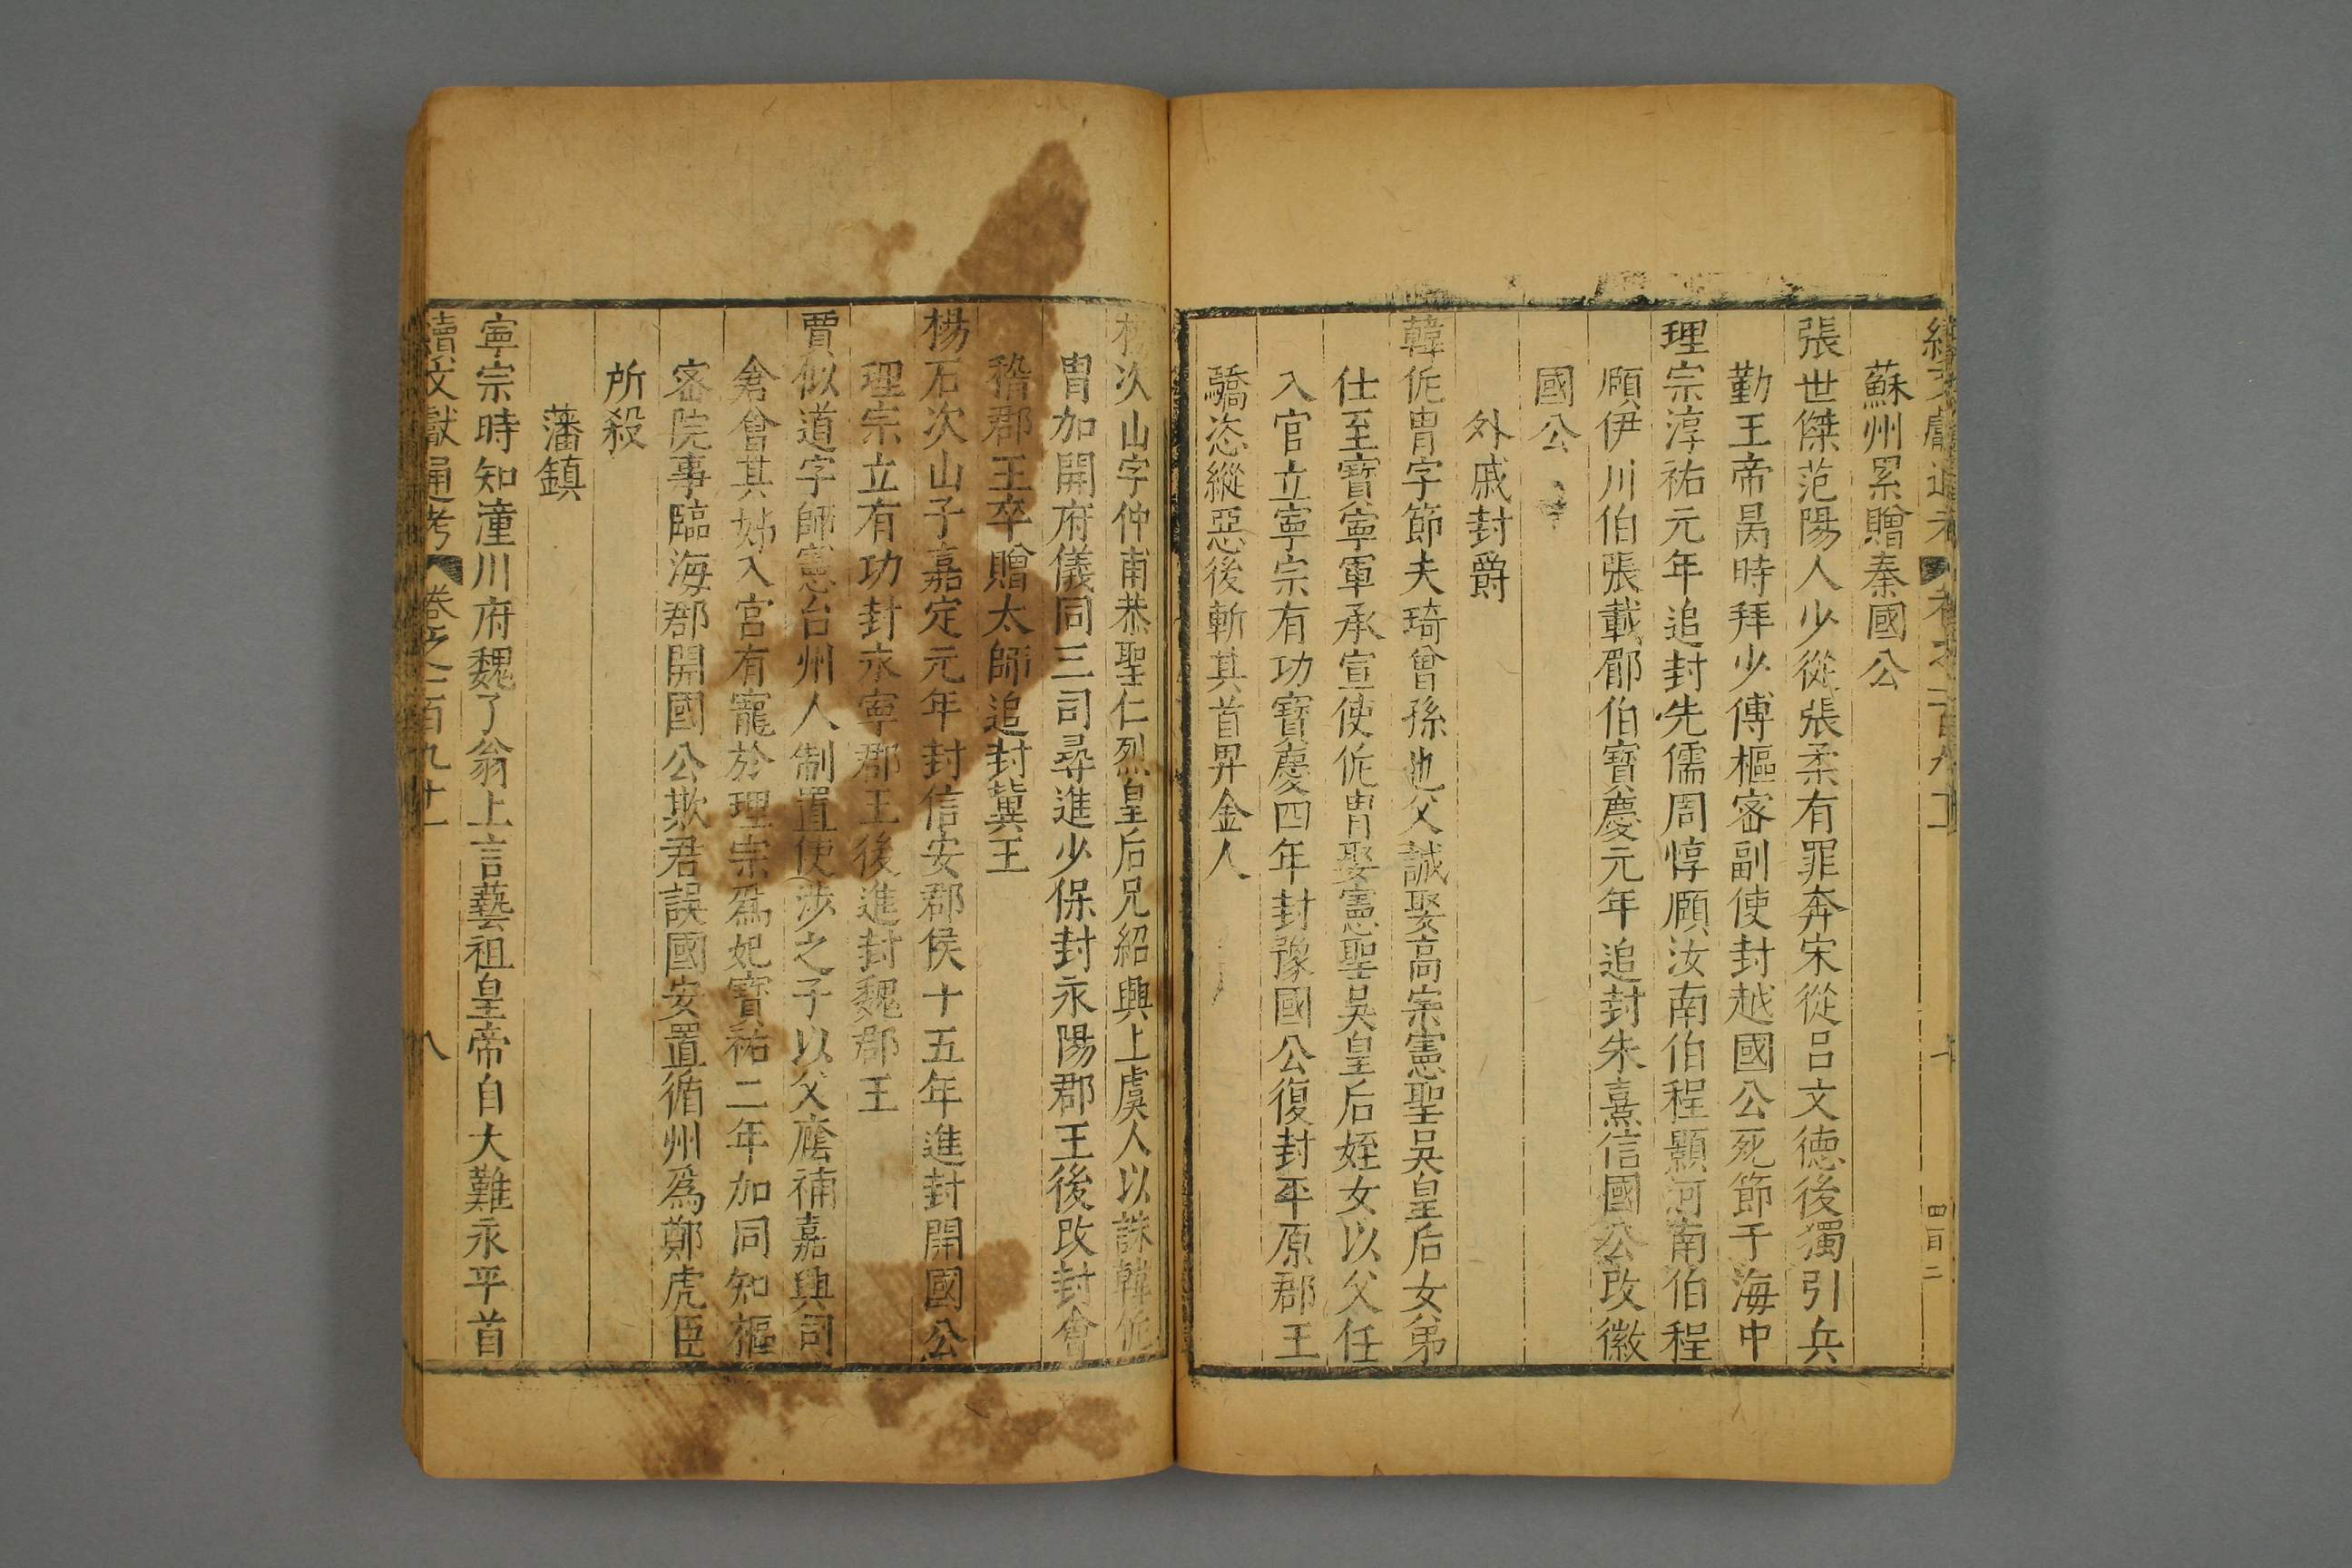 續文獻通考 卷之二百九十一
四百二
蘇州累贈秦國公
張世傑范陽人少從張柔有罪奔宋從呂文德後獨引兵
勤王帝昺時拜少傅樞密副使封越國公死節于海中
理宗淳祐元年追封先儒周惇頤汝南伯程顥河南伯程
頤伊川伯張載郿伯寶慶元年追封朱熹信國公改徽
國公
外戚封爵
韓侂胄字節夫琦曾孫也父誠娶高宗憲聖吳皇后女弟
仕至寶寧軍承宣使侂胄娶憲聖吳皇后姪女以父任
入官立寧宗有功寶慶四年封豫國公復封平原郡王
驕恣縱惡後斬其首畀金人
楊次山字仲甫恭聖仁烈皇后兄紹興上虞人以誅韓侂
胄加開府儀同三司尋進少保封永陽郡王後改封會
稽郡王卒贈太師追封冀王
楊石次山子嘉定元年封信安郡侯十五年進封開國公
理宗立有功封永寧郡王後進封魏郡王
賈似道字師憲台州人制置使涉之子以父廕補嘉興司
倉會其姊入宮有寵於理宗爲妃寶祐二年加同知樞
密院事臨海郡開國公欺君誤國安置循州爲鄭虎臣
所殺
藩鎮
寧宗時知潼川府魏了翁上言藝祖皇帝自大難永平首
續文獻通考 卷之二百九十一 八